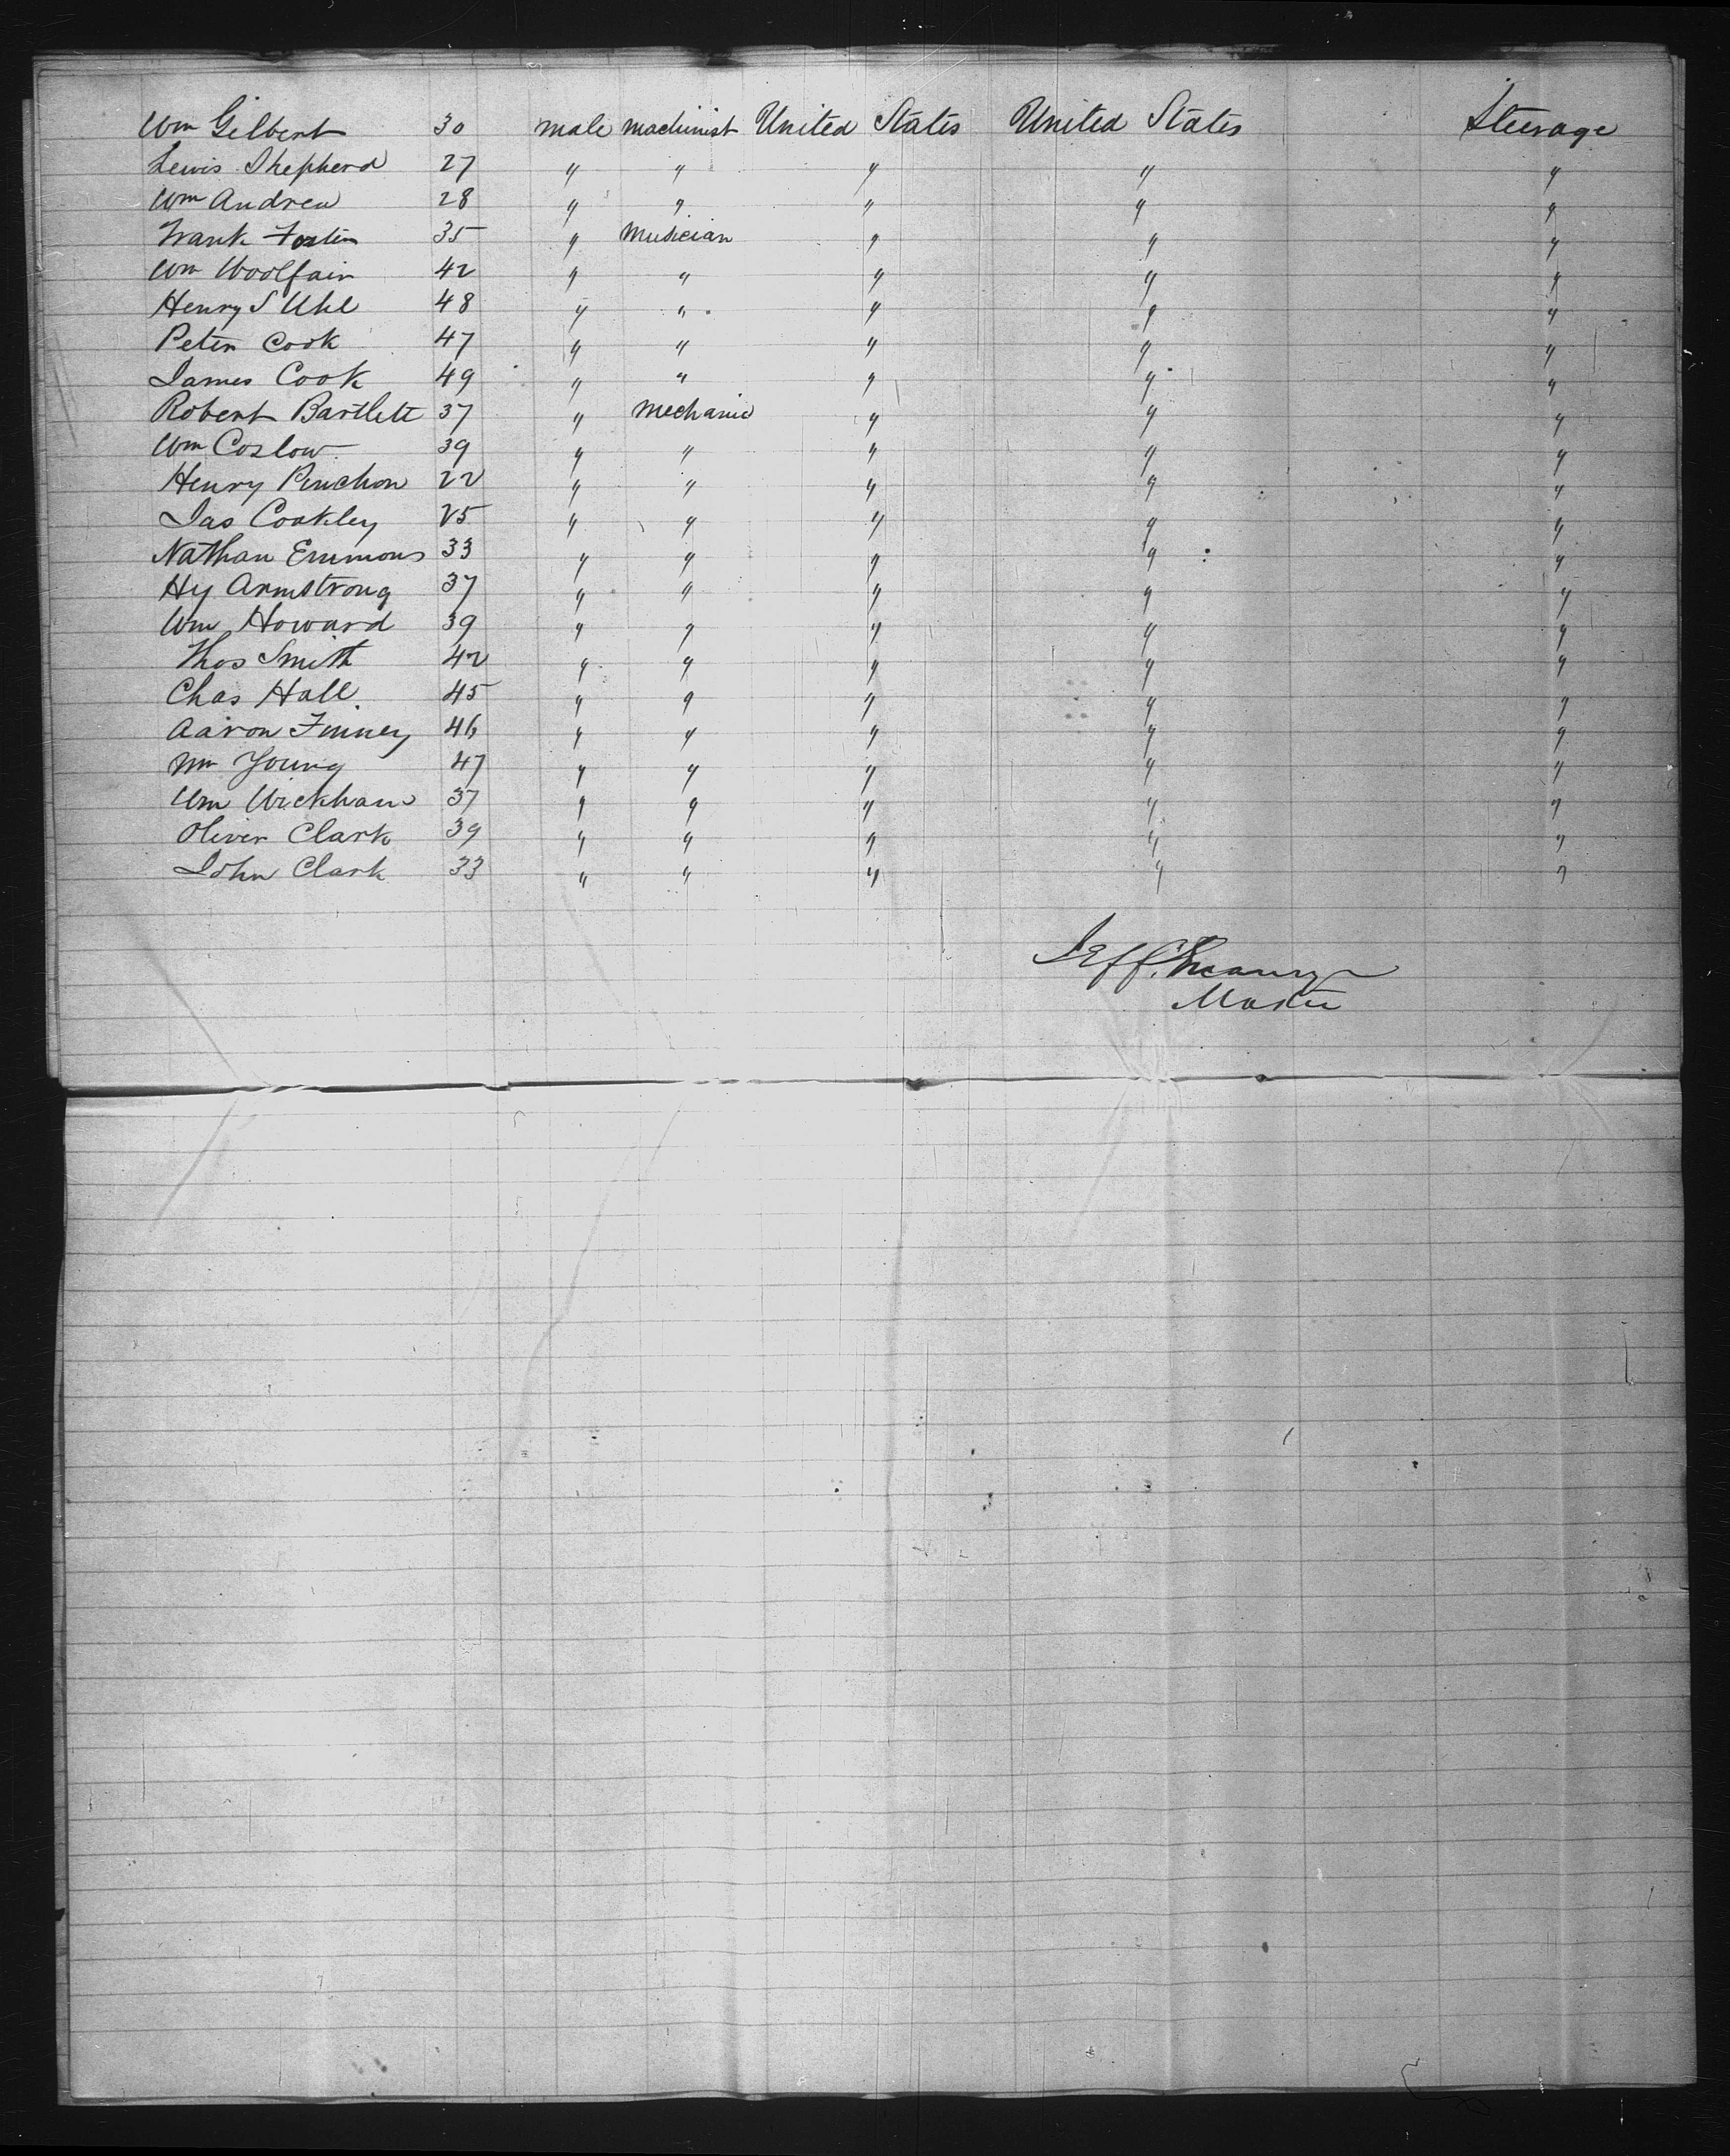 Wm Gilbert 30 male machinist United States United States Steerage
Lewis Shepherd 27 " " " " "
Wm Andrew 28 " " " " "
Frank Foster 35 " Musician " " "
Wm Woolfair 42 " " " " "
Henry S Uhl 48 " " " " "
Peter Cook 47 " " " " "
James Cook 49 " " " " "
Robert Bartlett 37 " Mechanic " " "
Wm Coslow 39 " " " " "
Henry Pinchon 22 " " " " "
Jas Coakley 25 " " " " "
Nathan Emmons 33 " " " " "
Hy Armstrong 37 " " " " "
Wm Howard 39 " " " " "
Thos Smith 42 " " " " "
Chas Hall 45 " " " " "
Aaron Finney 46 " " " " "
Wm Young 47 " " " " "
Wm Wickham 37 " " " " "
Oliver Clark 39 " " " " "
John Clark 33 " " " " "
Master